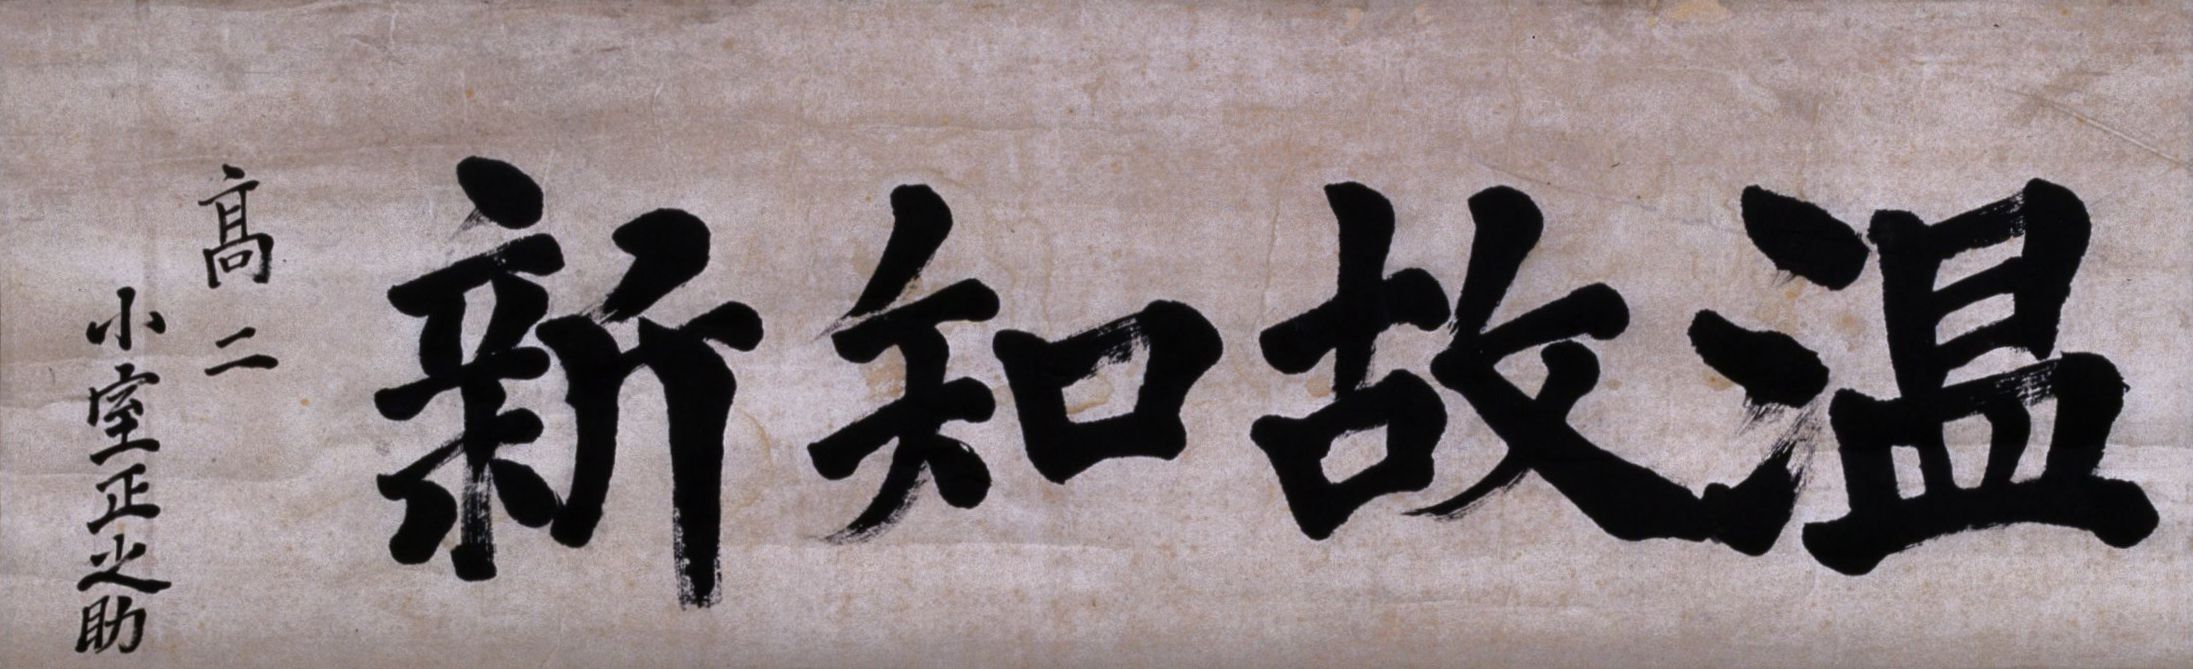 温故知新
髙二
小室正之助